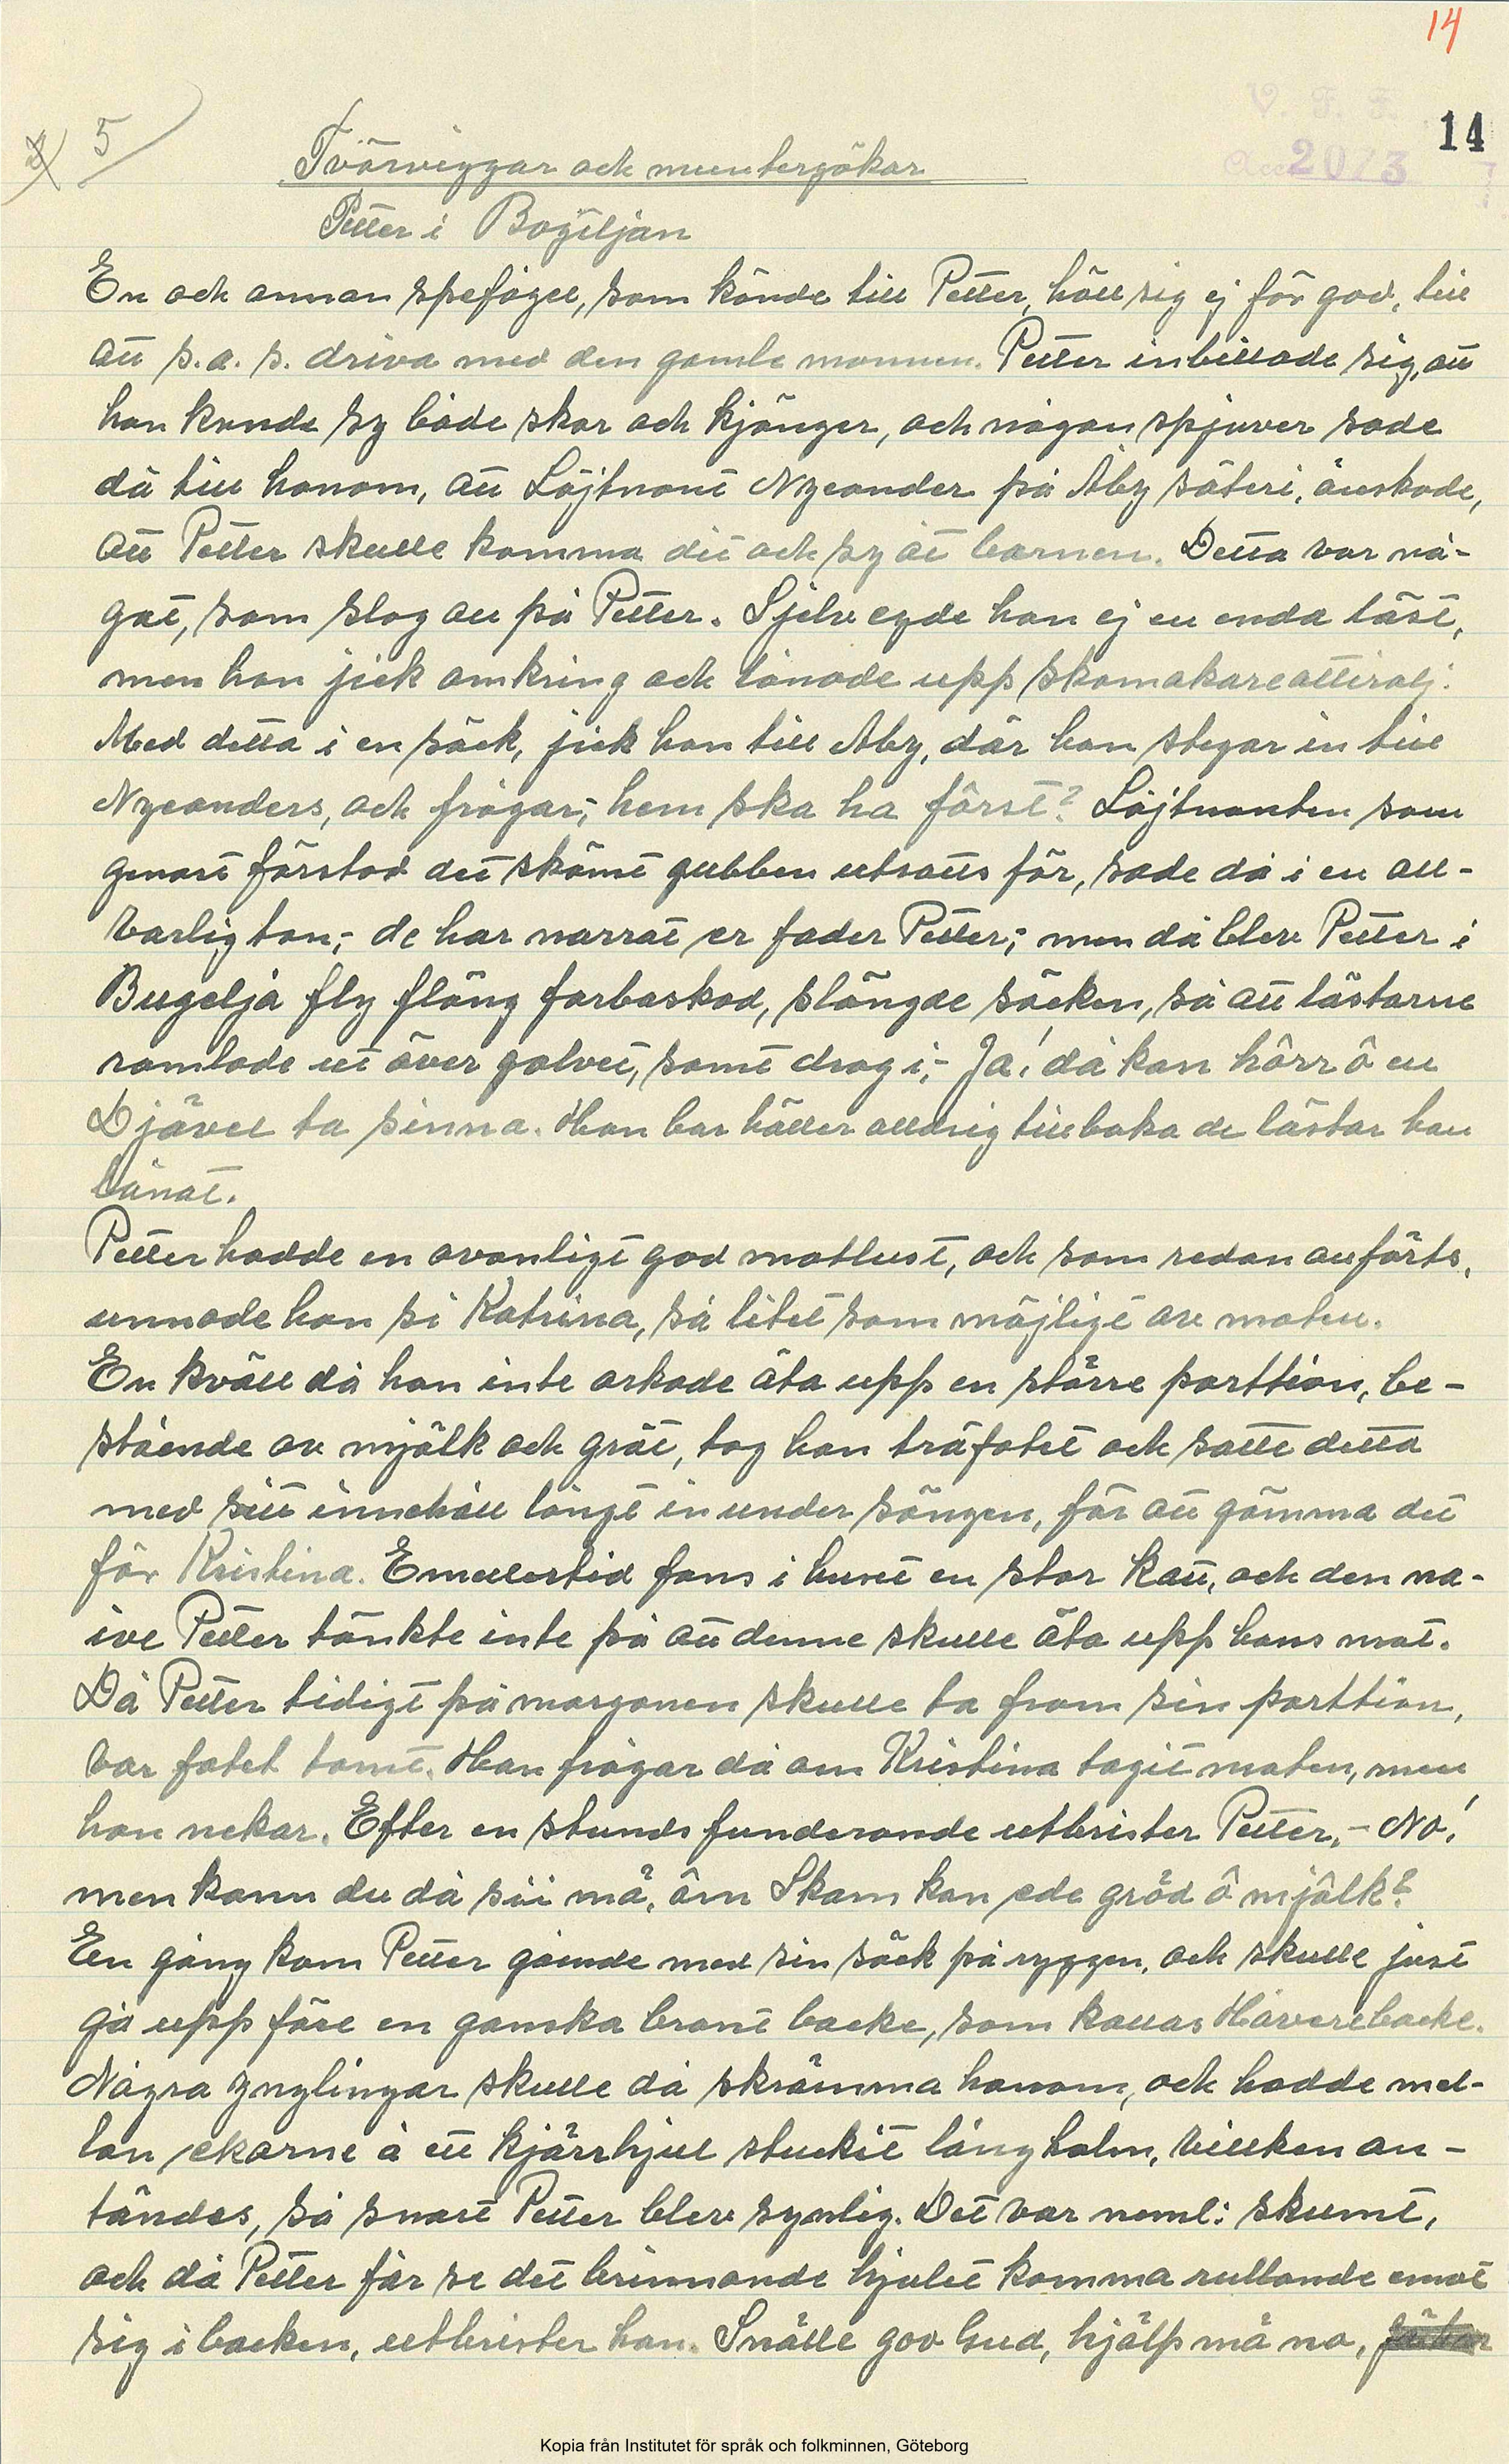 14
V. F. F.
Acc 2013
14
5
Tvärviggar och muntergökar
Petter i Bogeljan
En och annan spefågel, som kände till Petter, höll sig ej för god, till
att s.a.s. driva med den gamle mannen. Petter inbillade sig, att
han kunde sy både skor och kjänger, och någon spjuver sade
då till honom, att Löjtnant Nyeander på Åby säteri, önskade,
att Petter skulle komma dit och sy åt barnen. Detta var nå-
got, som slog an på Petter. Sjelv egde han ej en enda läst,
men han jick omkring och lånade upp skomakareattiralj.
Med detta i en säck, jick han till Åby, där han stegar in till
Nyeanders, och frågar;- hem ska ha först? Löjtnanten som
genast förstod det skämt gubben utsatts för, sade då i en all-
varlig ton;- de har narrat er fader Petter;- men då blev Petter i
Bugeljå fly fläng forbaskad, slängde säcken, så att lästarne
ramlade ut över golvet, samt drog i;- Ja! då kan hôrr ô en
Djävel ta sinna. Han bar häller alldrig tillbaka de lästar han
lånat.
Petter hadde en ovanligt god matlust, och som redan anförts,
unnade han si Katrina, så litet som möjligt av maten.
En kväll då han inte orkade äta upp en större porttion, be-
stående av mjölk och gröt, tog han träfatet och satte detta
med sitt innehåll långt in under sängen, för att gömma det
för Kristina. Emellertid fans i huset en stor katt, och den na-
ive Petter tänkte inte på att denne skulle äta upp hans mat.
Då Petter tidigt på morgonen skulle ta fram sin porttion,
var fatet tomt. Han frågar då om Kristina tagit maten, men
hon nekar. Efter en stunds funderande utbrister Petter,- Nô!
men kann du då sii må, ôm Skam kan ede gröd ô mjôlk?
En gång kom Petter gående med sin säck på ryggen, och skulle just
gå upp före en ganska brant backe, som kallas Håverebacke.
Några ynglingar skulle då skrämma honom, och hadde mel-
lan ekarne å ett kjärrhjul stuckit lång halm, villken an-
tändes, så snart Petter blev synlig. Det var neml: skumt,
och då Petter får se det brinnande hjulet komma rullande emot
sig i backen, utbrister han. Snälle gov Gud, hjälp må no,
Kopia från Institutet för språk och folkminnen, Göteborg